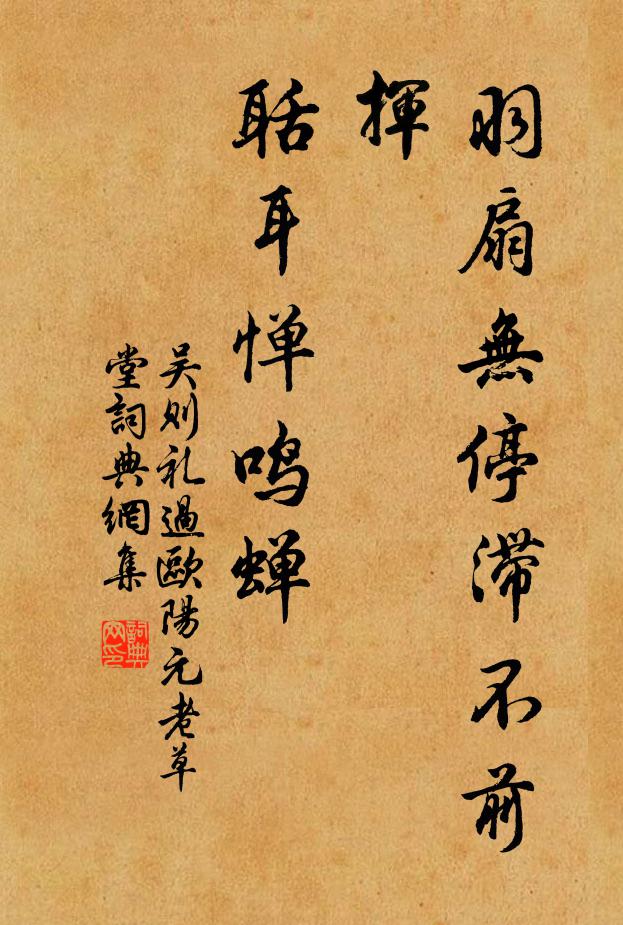 羽扇無停滯不前
揮
聒耳惮鸣蝉
吴则礼過歐陽元老草
堂詞典網集
詞典
网印